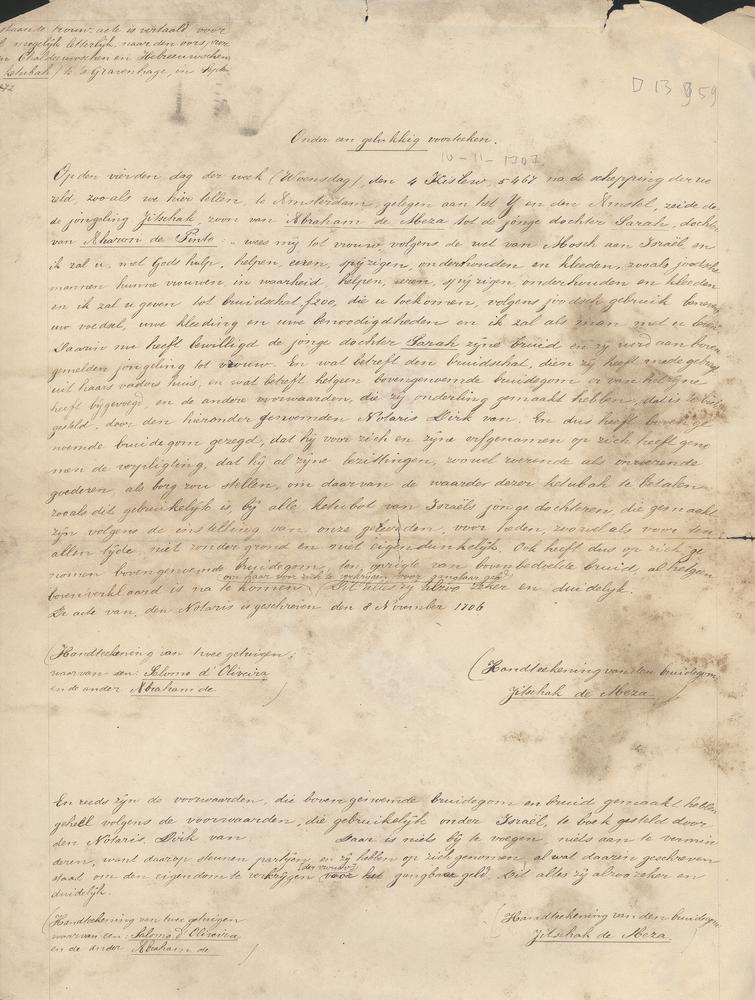 staande trouw-acte is vertaald voor
mogelijk letterlijk, naar den oorspron
n Chaldeeuwschen en Hebreeuwschen
ketubah) te 's Gravenhage, in Septr
872
D 13 959
Onder een gelukkig voorteeken.
10-11-1707
Op den vierden dag der week (Woensdag), den 4 Kislew, 5467 na de schepping der we
reld, zooals we hier tellen, te Amsterdam, gelegen aan het Y en den Amstel, zeide de
de jongeling Jitschak, zoon van Abraham de Meza tot de jonge dochter Sarah, dochter
van Aharon de Pinto: wees mij tot vrouw, volgens de wet van Mosch aan Israël, en
ik zal u, met Gods hulp, helpen, eeren, spijzigen, onderhouden en kleeden, zooals joodsche
mannen hunne vrouwen, in waarheid, helpen, eeren, spijzigen, onderhouden en kleeden
en ik zal u geven tot bruidschat f 200, die u toekomen, volgens joodsch gebruik benevens
uw voedsel, uwe kleeding en uwe benoodigdheden en ik zal als man met u leven
Daarin nu heeft bewilligd de jonge dochter Sarah zijne bruid en zij werd aan boven
gemelden jongeling tot vrouw. En wat betreft den bruidschat, dien zij heeft medegebragt
uit haars vaders huis, en wat betreft hetgeen bovengenoemde bruidegom er van het zijne
heeft bijgevoegd, en de andere voorwaarden, die zij onderling gemaakt hebben, dat is te boek
gesteld, door den hieronder genoemden Notaris Dirk van. En dus heeft bovenge
noemde bruidegom gezegd, dat hij voor zich en zijne erfgenamen op zich heeft geno
men de verpligting, dat hij al zijne bezittingen, zoowel roerende als onroerende
goederen, als borg zou stellen, om daarvan de waarde dezer ketubah te betalen
zooals dit gebruikelijk is, bij alle ketubot van Israëls jonge dochteren, die gemaakt
zijn volgens de instelling van onze geleerden, voor heden, zoowel als voor ten
allen tijde, niet zonder grond en niet eigendunkelijk. Ook heeft dus op zich ge
nomen bovengenoemde bruidegom, ten opzigte van bovenbedoelde bruid, al hetgeen
om haar voor zich te verkrijgen voor gangbaar geld
bovenverklaard is na te komen. Dit alles zij alzoo zeker en duidelijk.
De acte van den Notaris is geschreven den 8 November 1706
(Handteekening van twee getuigen;
waarvan een: Salomo d'Oliveira
en de ander Abraham de )
(Handteekening van den bruidegom
Jitschak de Meza )
En reeds zijn de voorwaarden, die bovengenoemde bruidegom en bruid gemaakt hebben
geheel volgens de voorwaarden, die gebruikelijk onder Israël, te boek gesteld door
den Notaris Dirk van Daar is niets bij te voegen, niets aan te vermin
deren, want daarop steunen partijen en zij hebben op zich genomen, al wat daarin geschreven
staat om den eigendom te verkrijgen voor het gangbaar geld. Dit alles zij alzoo zeker en
duidelijk.
(Handteekening van twee getuigen
waarvan een: Salomo d'Oliveira
en de ander Abraham de )
(Handteekening van den bruidegom
Jitschak de Meza )